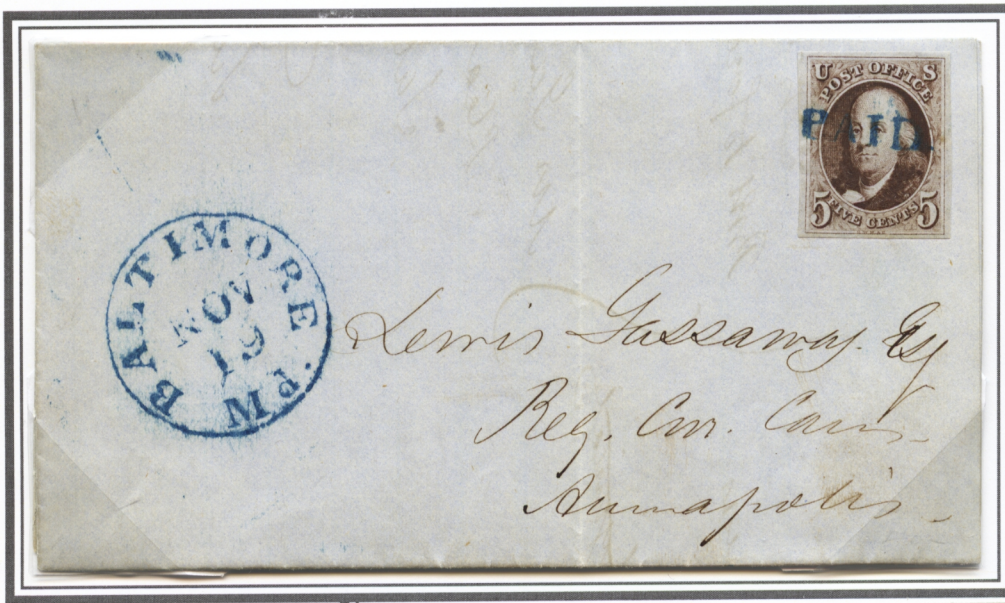 U S
POST OFFICE
PAID
5 FIVE CENTS 5
BALTIMORE. Md
NOV
19
Lewis Gassaway. Esq
Reg. Cur. Can.
Annapolis